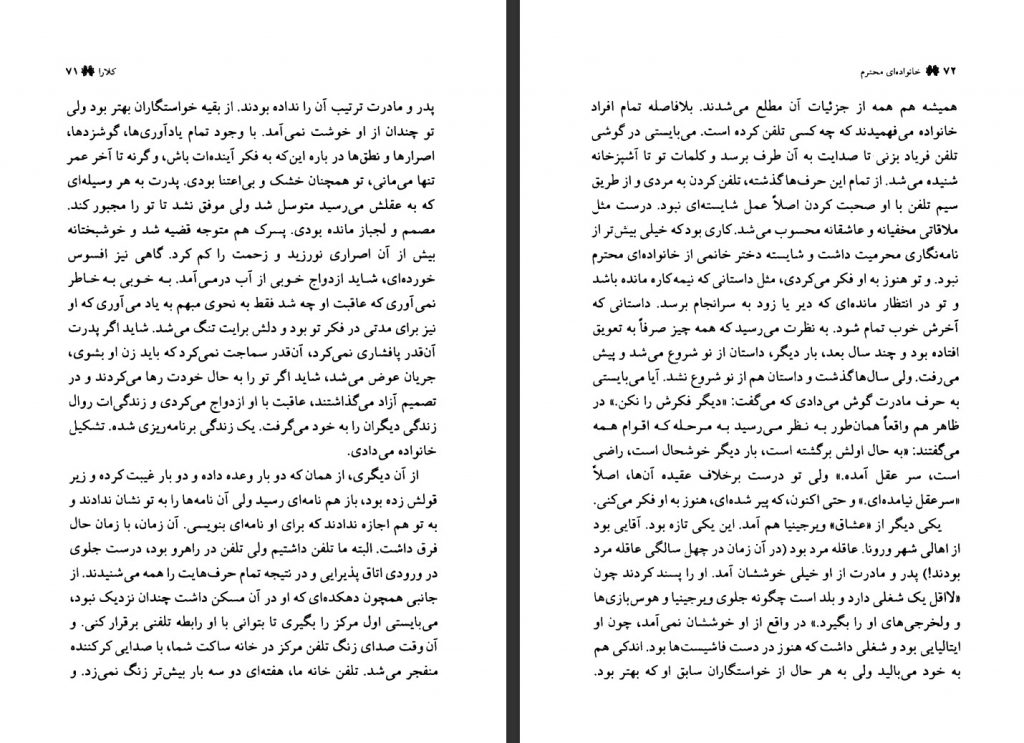 کلارا ۷۱
پدر و مادرت ترتیب آن را نداده بودند. از بقیه خواستگاران بهتر بود ولی
تو چندان از او خوشت نمی‌آمد. با وجود تمام یادآوری‌ها، گوشزدها،
اصرارها و نطق‌ها در باره این‌که به فکر آینده‌ات باش، وگرنه تا آخر عمر
تنها می‌مانی، تو همچنان خشک و بی‌اعتنا بودی. پدرت به هر وسیله‌ای
که به عقلش می‌رسید متوسل شد ولی موفق نشد تا تو را مجبور کند.
مصمم و لجباز مانده بودی. پسرک هم متوجه قضیه شد و خوشبختانه
بیش از آن اصراری نورزید و زحمت را کم کرد. گاهی نیز افسوس
خورده‌ای، شاید ازدواج خوبی از آب درمی‌آمد. به خوبی به خاطر
نمی‌آوری که عاقبت او چه شد فقط به نحوی مبهم به یاد می‌آوری که او
نیز برای مدتی در فکر تو بود و دلش برایت تنگ می‌شد. شاید اگر پدرت
آن‌قدر پافشاری نمی‌کرد، آن‌قدر سماجت نمی‌کرد که باید زن او بشوی،
جریان عوض می‌شد، شاید اگر تو را به حال خودت رها می‌کردند و در
تصمیم آزاد می‌گذاشتند، عاقبت با او ازدواج می‌کردی و زندگی‌ات روال
زندگی دیگران را به خود می‌گرفت. یک زندگی برنامه‌ریزی شده. تشکیل
خانواده می‌دادی.
از آن دیگری، از همان که دو بار وعده داده و دو بار غیبت کرده و زیر
قولش زده بود، باز هم نامه‌ای رسید ولی آن نامه‌ها را به تو نشان ندادند و
به تو هم اجازه ندادند که برای او نامه‌ای بنویسی. آن زمان، با زمان حال
فرق داشت. البته ما تلفن داشتیم ولی تلفن در راهرو بود، درست جلوی
در ورودی اتاق پذیرایی و در نتیجه تمام حرف‌هایت را همه می‌شنیدند. از
جانبی همچون دهکده‌ای که او در آن مسکن داشت چندان نزدیک نبود،
می‌بایستی اول مرکز را بگیری تا بتوانی با او رابطه تلفنی برقرار کنی. و
آن وقت صدای زنگ تلفن مرکز در خانه ساکت شما، با صدایی کرکننده
منفجر می‌شد. تلفن خانه ما، هفته‌ای دو سه بار بیش‌تر زنگ نمی‌زد. و
۷۲ خانواده‌ای محترم
همیشه هم همه از جزئیات آن مطلع می‌شدند. بلافاصله تمام افراد
خانواده می‌فهمیدند که چه کسی تلفن کرده است. می‌بایستی در گوشی
تلفن فریاد بزنی تا صدایت به آن طرف برسد و کلمات تو تا آشپزخانه
شنیده می‌شد. از تمام این حرف‌ها گذشته، تلفن کردن به مردی و از طریق
سیم تلفن با او صحبت کردن اصلاً عمل شایسته‌ای نبود. درست مثل
ملاقاتی مخفیانه و عاشقانه محسوب می‌شد. کاری بود که خیلی بیش‌تر از
نامه‌نگاری محرمیت داشت و شایسته دختر خانمی از خانواده‌ای محترم
نبود. و تو هنوز به او فکر می‌کردی، مثل داستانی که نیمه‌کاره مانده باشد
و تو در انتظار مانده‌ای که دیر یا زود به سرانجام برسد. داستانی که
آخرش خوب تمام شود. به نظرت می‌رسید که همه چیز صرفاً به تعویق
افتاده بود و چند سال بعد، بار دیگر، داستان از نو شروع می‌شد و پیش
می‌رفت. ولی سال‌ها گذشت و داستان هم از نو شروع نشد. آیا می‌بایستی
به حرف مادرت گوش می‌دادی که می‌گفت: «دیگر فکرش را نکن.» در
ظاهر هم واقعاً همان‌طور به نظر می‌رسید به مرحله که اقوام همه
می‌گفتند: «به حال اولش برگشته است، بار دیگر خوشحال است، راضی
است، سر عقل آمده.» ولی تو درست برخلاف عقیده آن‌ها، اصلاً
«سرعقل نیامده‌ای.» و حتی اکنون، که پیر شده‌ای، هنوز به او فکر می‌کنی.
یکی دیگر از «عشاق» ویرجینیا هم آمد. این یکی تازه بود. آقایی بود
از اهالی شهر ورونا. عاقله مرد بود (در آن زمان در چهل سالگی عاقله مرد
بودند!) پدر و مادرت از او خیلی خوششان آمد. او را پسند کردند چون
«لااقل یک شغلی دارد و بلد است چگونه جلوی ویرجینیا و هوس‌بازی‌ها
و ولخرجی‌های او را بگیرد.» در واقع از او خوششان نمی‌آمد، چون او
ایتالیایی بود و شغلی داشت که هنوز در دست فاشیست‌ها بود. اندکی هم
به خود می‌بالید ولی به هر حال از خواستگاران سابق او که بهتر بود.